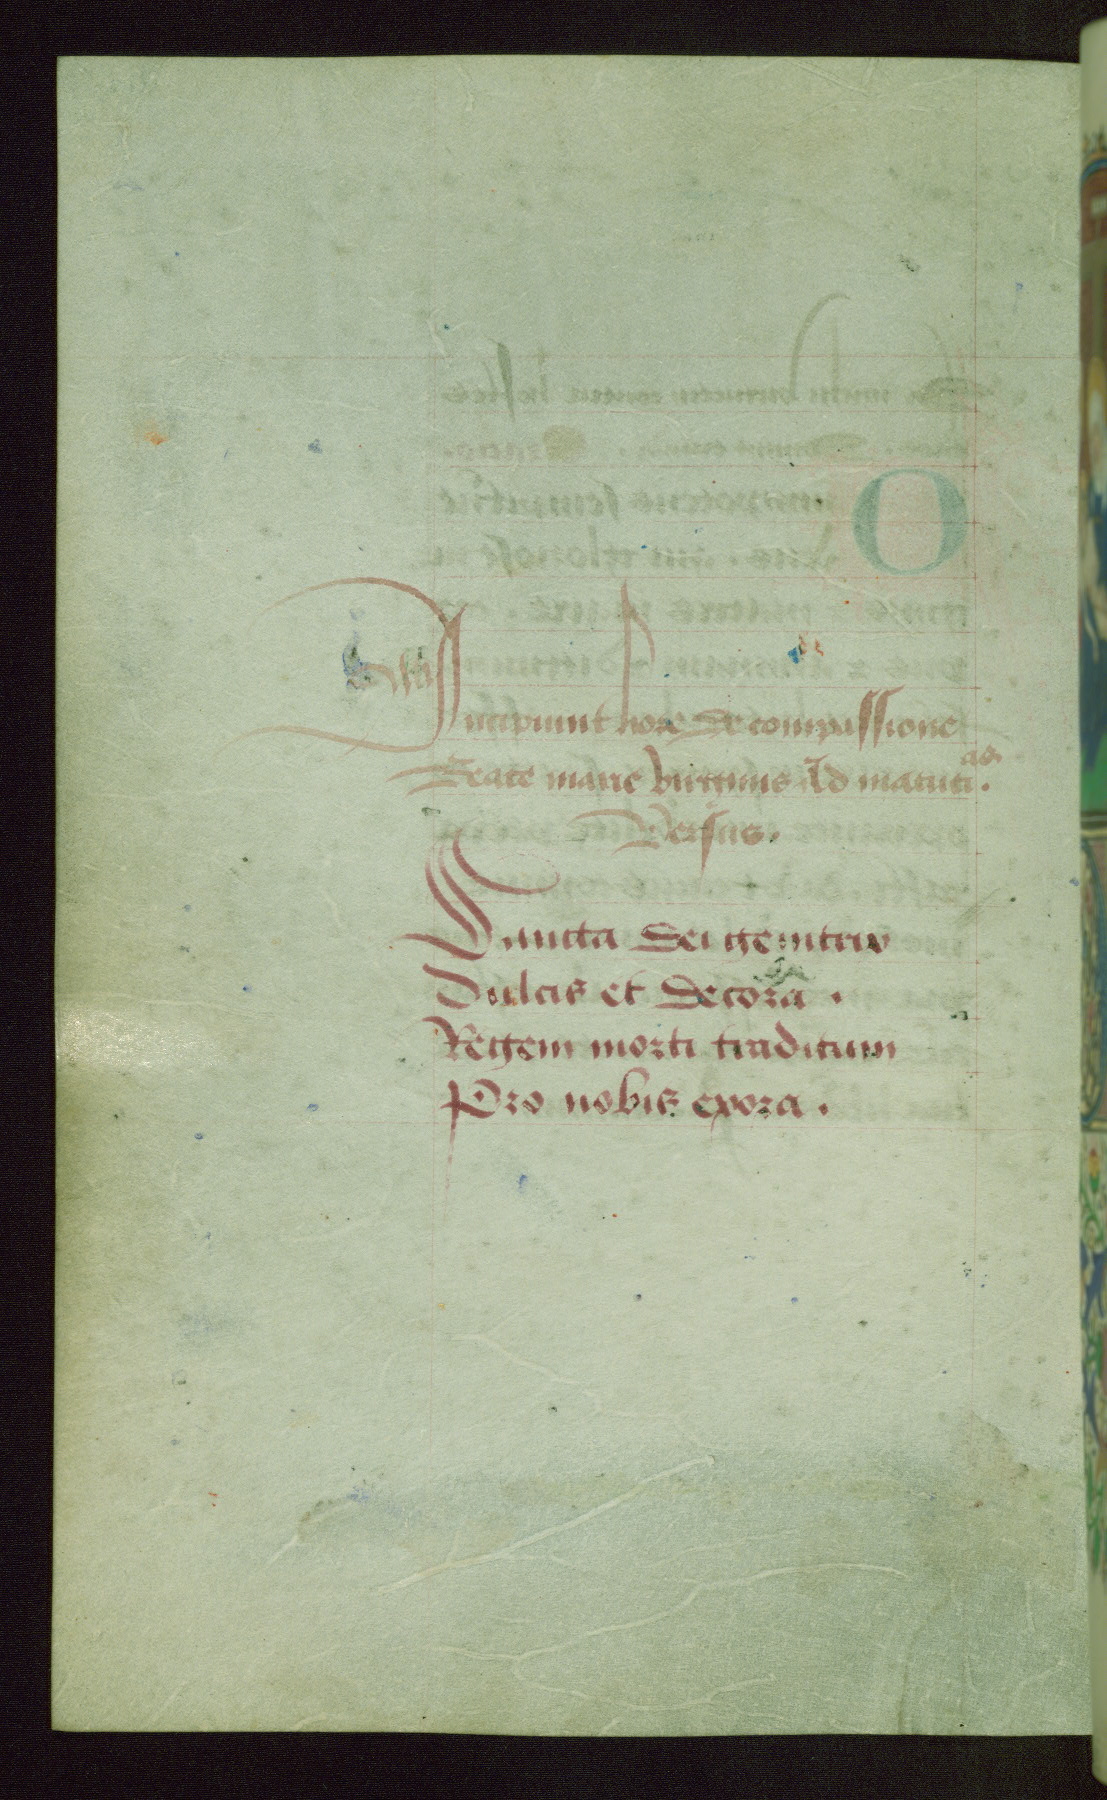 Incipiunt hore de compassione
Beate marie virginis Ad matuti.
as
Versus.
Sancta dei genitrix
Dulcis et decora.
Regem morti traditum
Pro nobis exora.